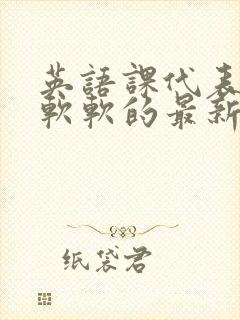 英語課代表
軟軟的最新
纸袋君